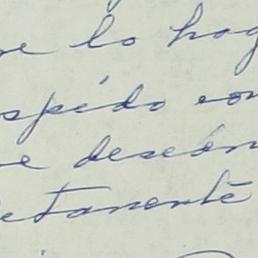 e lo hag
spido con
e deseán
etamente